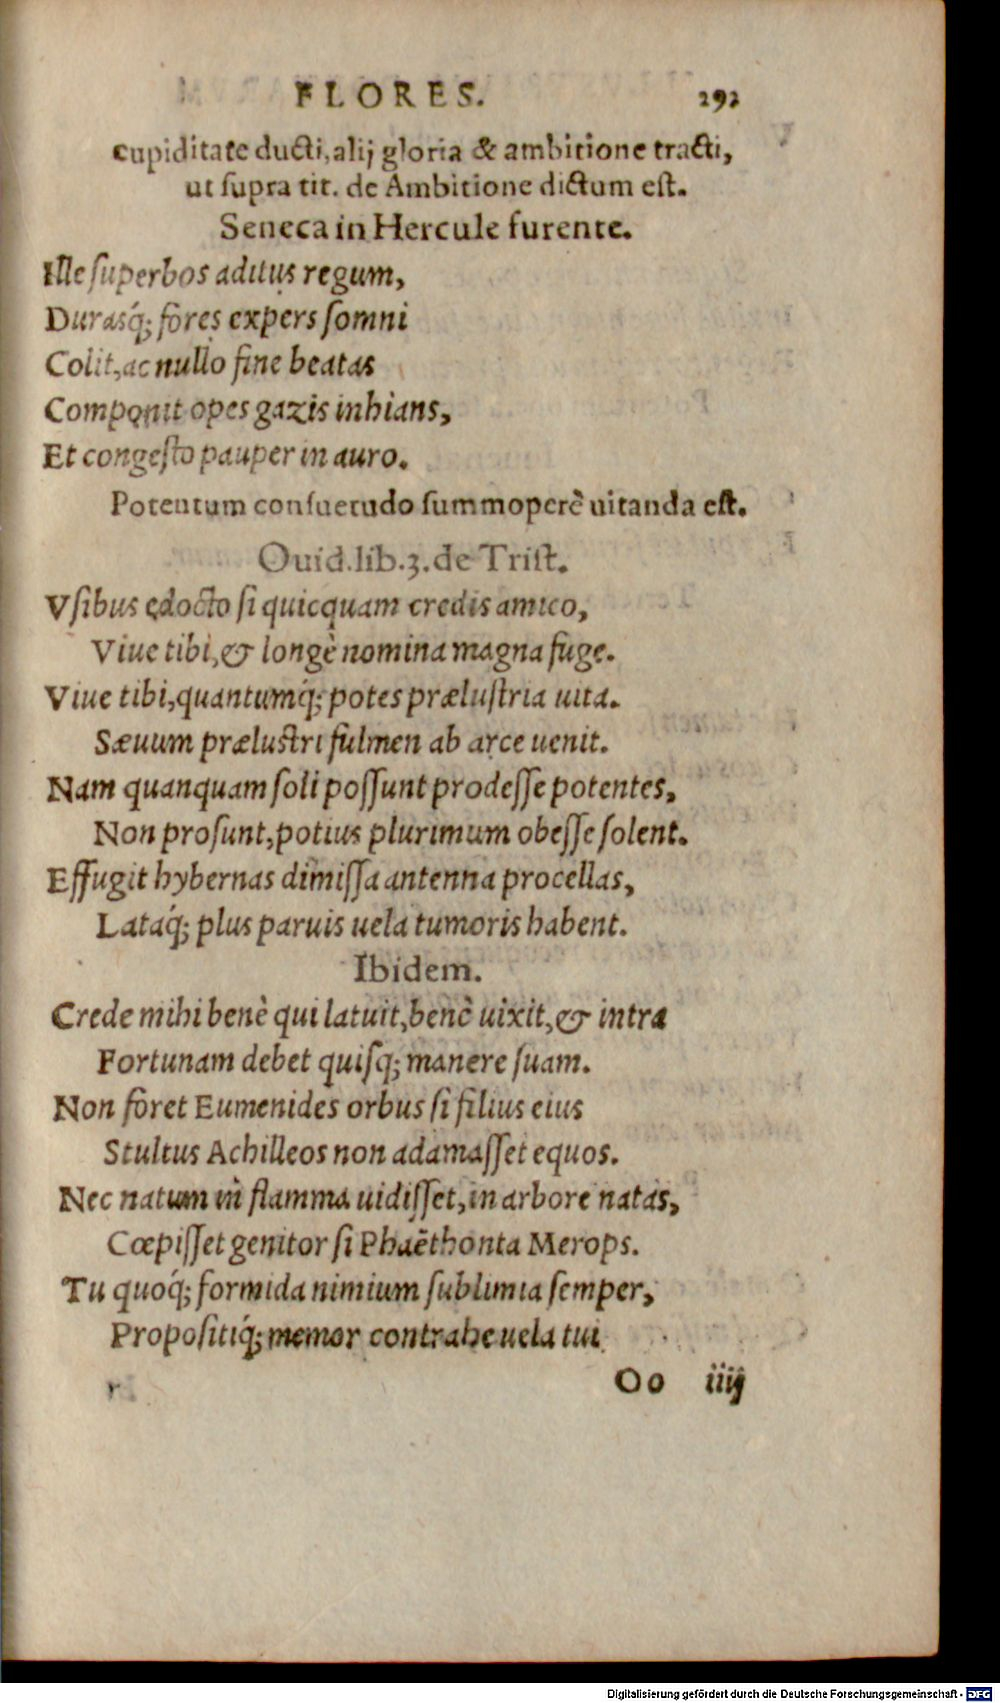 FLORES. 292
cupiditate ducti, alij gloria & ambitione tracti,
ut supra tit. de Ambitione dictum est.
Seneca in Hercule furente.
Ille superbos aditus regum,
Durasq́; fores expers somni
Colit, ac nullo fine beatas
Componit opes gazis inhians,
Et congesto pauper in auro.
Potentum consuetudo summoperè uitanda est.
Ouid. lib. 3. de Trist.
Vsibus edocto si quicquam credis amico,
Viue tibi, & longè nomina magna fuge.
Viue tibi, quantumq́; potes prælustria uita.
Sæuum prælustri fulmen ab arce uenit.
Nam quanquam soli possunt prodesse potentes,
Non prosunt, potius plurimum obesse solent.
Effugit hybernas dimissa antenna procellas,
Lataq́; plus paruis uela tumoris habent.
Ibidem.
Crede mihi benè qui latuit, benè uixit, & intra
Fortunam debet quisq; manere suam.
Non foret Eumenides orbus si filius eius
Stultus Achilleos non adamasset equos.
Nec natum in flamma uidisset, in arbore natas,
Cœpisset genitor si Phaëthonta Merops.
Tu quoq́; formida nimium sublimia semper,
Propositiq́; memor contrahe uela tui
Oo iiij
Digitalisierung gefördert durch die Deutsche Forschungsgemeinschaft - DFG